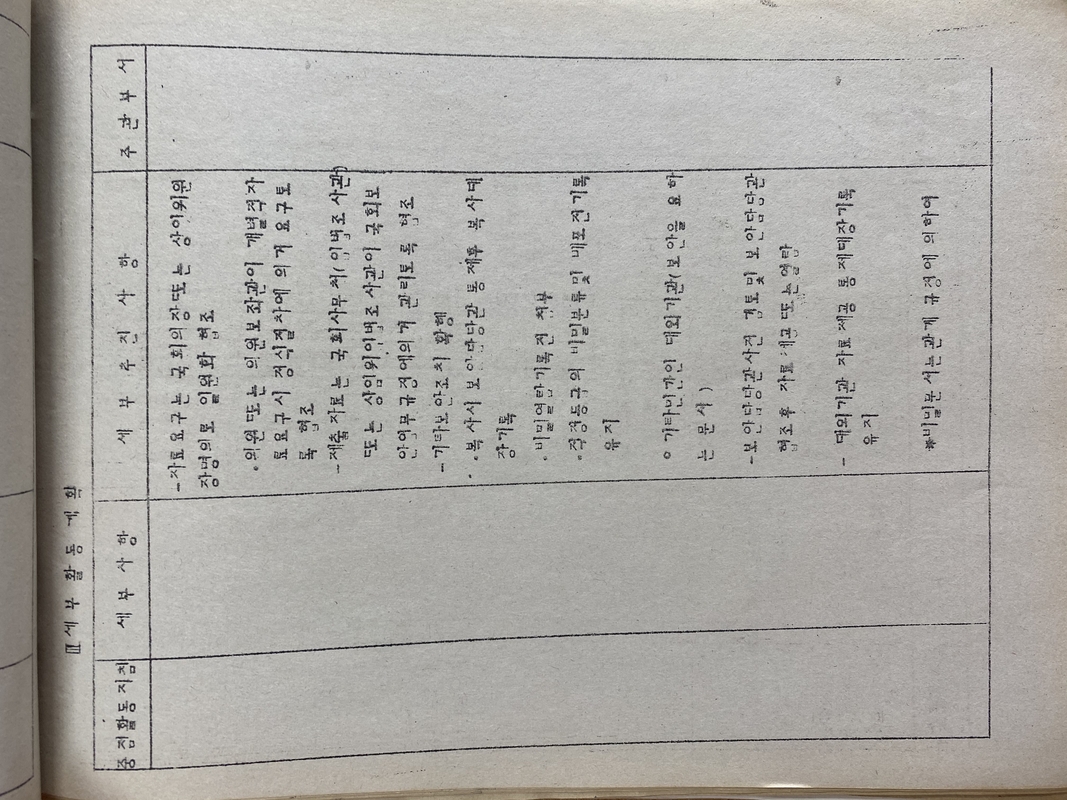 Ⅲ 세부활동계획
중점활동지침
세부사항
세부추진사항
주관부서
- 자료요구는 국회의장또는 상임위원
장명의로 일원화 협조
∘ 의원또는 의원보좌관이 개별적자
료요구시 정식절차에의거 요구토
록 협조
- 제출자료는 국회사무처( 입법조사관)
또는 상임위입법조사관이 국회보
안업무규정에의거 관리토록 협조
- 기타보안조치 확행
∘ 복사시 보안담당관 통제후 복사대
장기록
∘ 비밀열람기록전 첨부
∘ 적정등급의 비밀분류및 배포선기록
유지
○ 기타민간인 대외기관( 보안을 요하
는 문서 )
- 보안담당관사전 검토및 보안담당관
협조후 자료제공또는열람
- 대외기관 자료제공 통제대장기록
유지
※비밀문서는관계 규정에 의하여